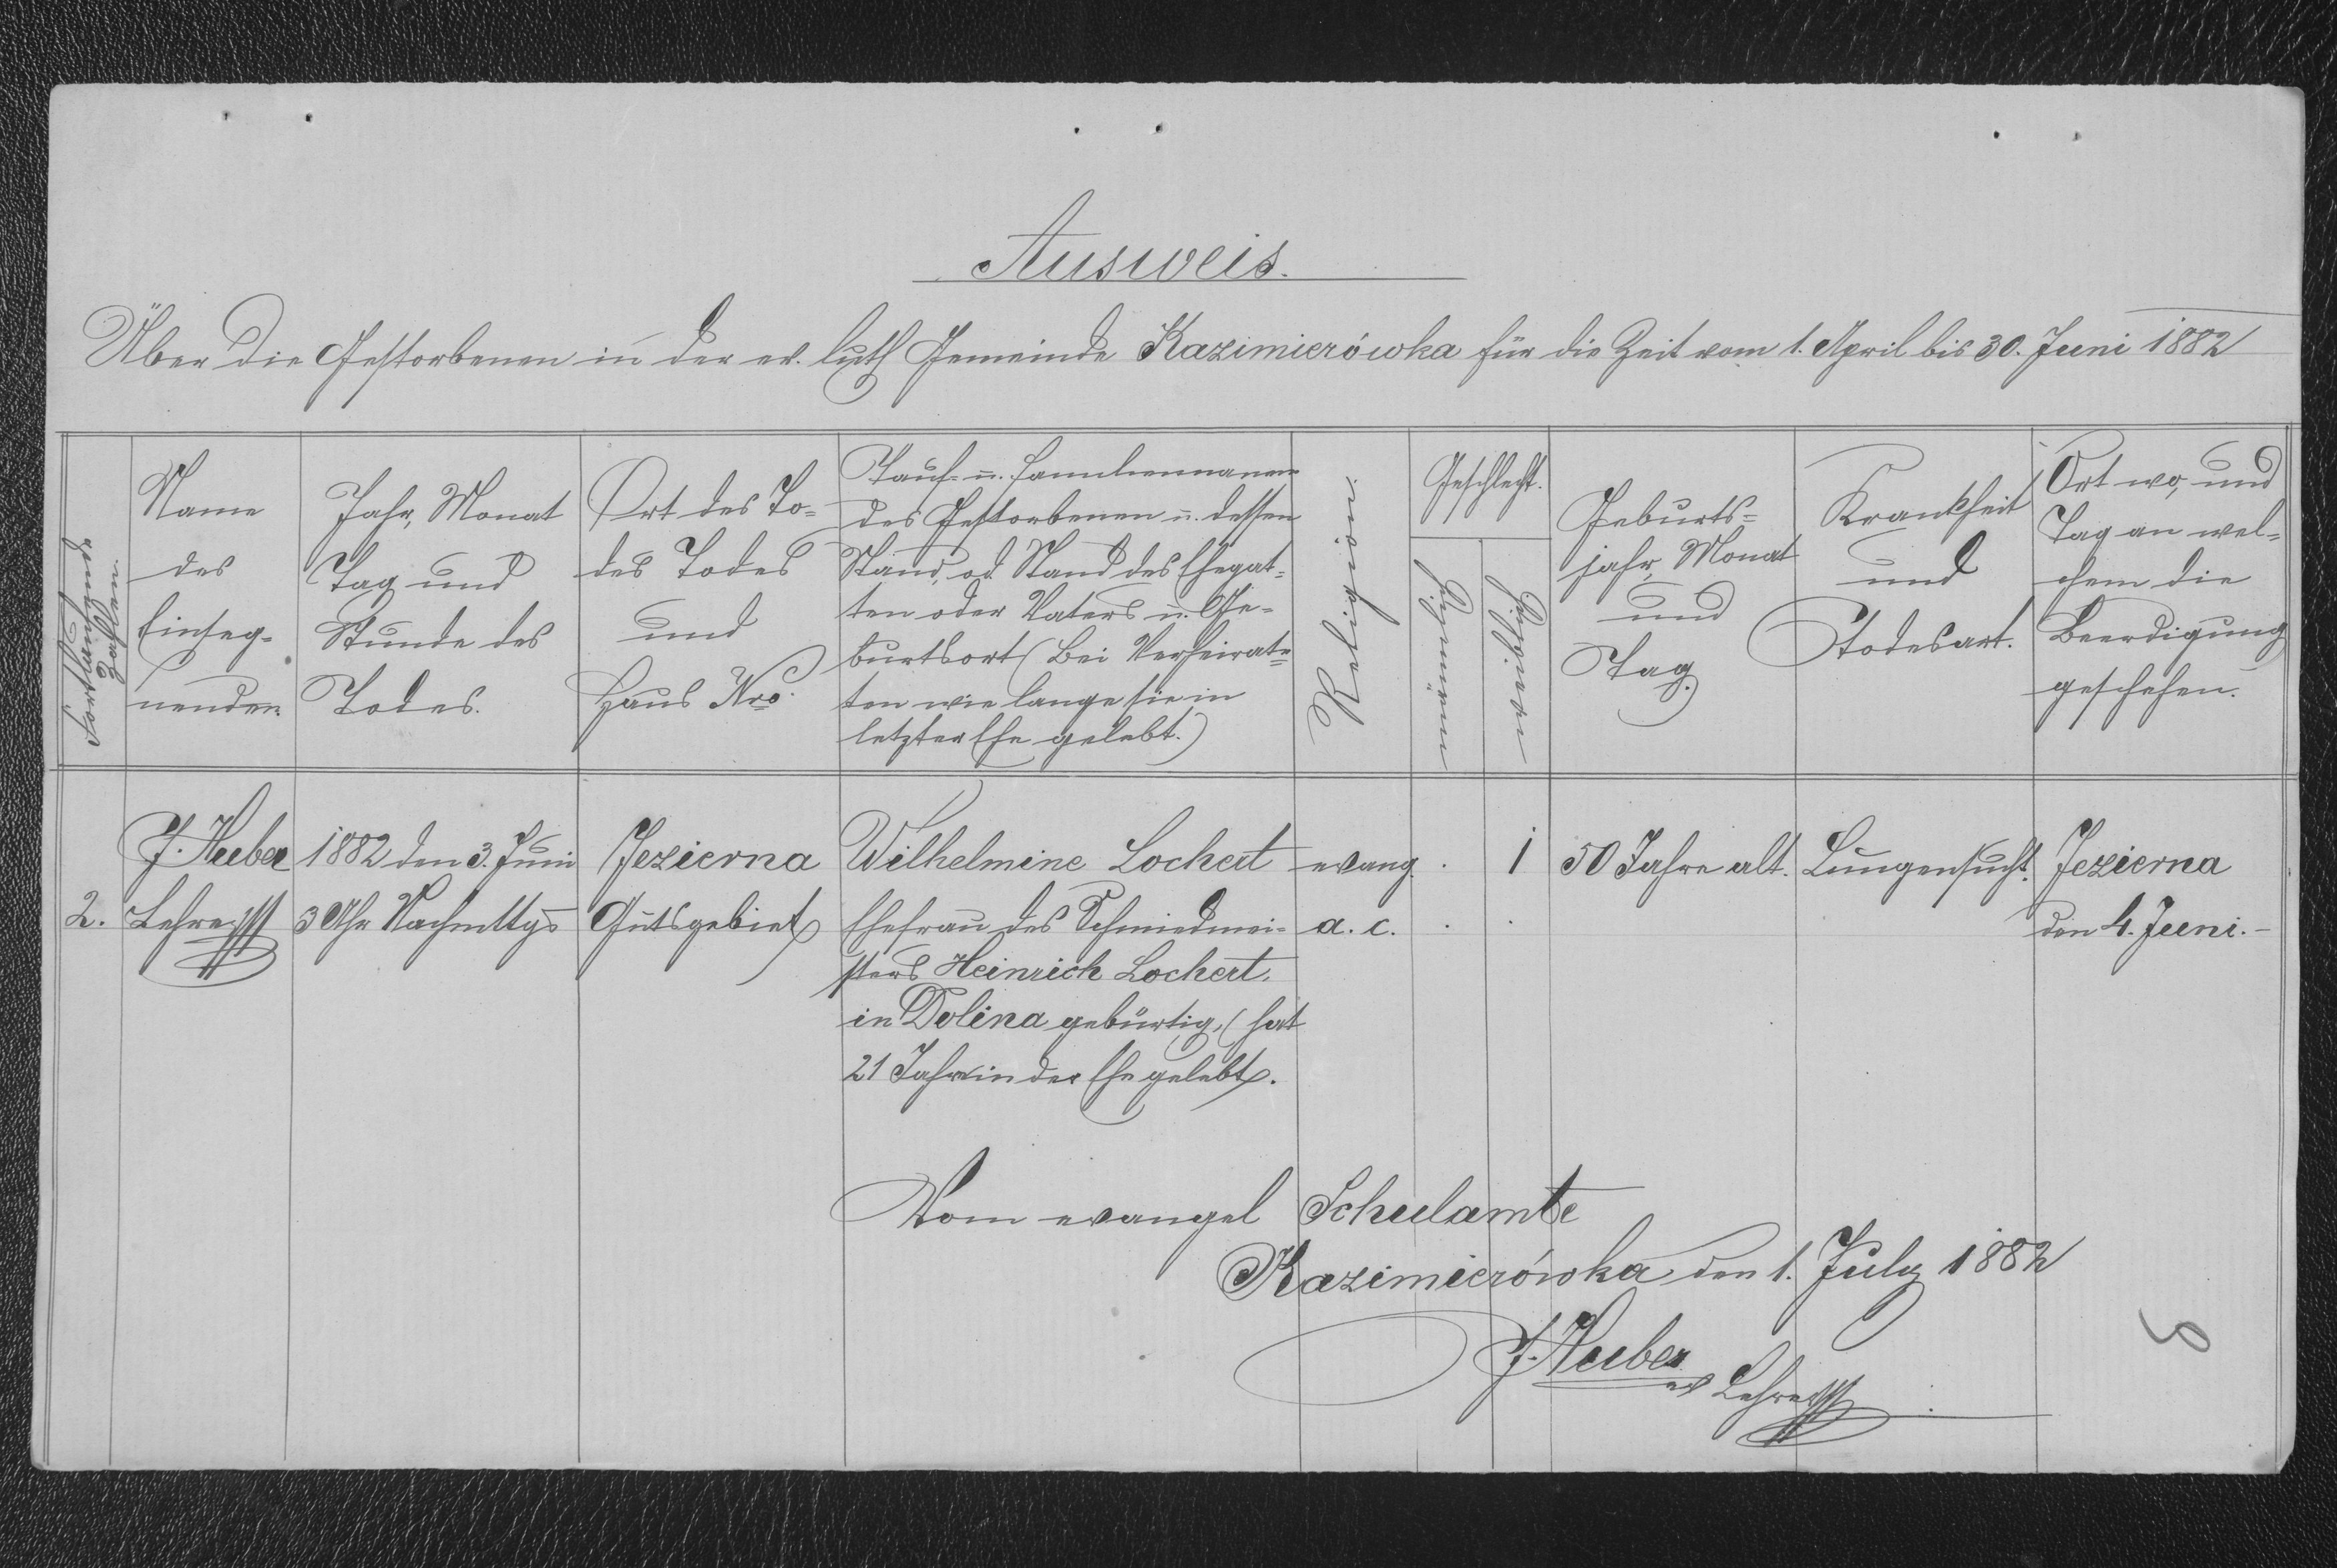 Ausweis.
Über die Gestorbenen in der ev. luth Gemeinde Kazimierówka für die Zeit vom 1. April bis 30. Juni 1882
Fortlaufende
Zahlen.
Name
des
Einseg-
nenden
Jahr, Monat
Tag und
Stunde des
Todes.
Ort des To-
des Todes
und
Haus Nro.
Tauf- u. Familiennamen
des Gestorbenen u. dessen
Stand, od. Stand des Ehegat-
ten oder Vaters u. Ge-
burtsort (Bei Verheirat-
ten wie lange sie in
letzter Ehe gelebt.)
Religion
Geschlecht.
Geburts-
jahr, Monat
und
Tag.
Krankheit
und
Todesart.
Ort wo, und
Tag an wel-
chem die
Beerdigung
geschehen.
2.
J. Huber
Lehrer
1882 den 3. Juni
3 Uhr Nachmttgs
Jezierna
Gutsgebiet
Wilhelmine Lochert
Ehefrau des Schmiedmei-
sters Heinrich Lochert.
in Dolina gebürtig, (hat
21 Jahre in der Ehe gelebt.
evang.
a. c.
1
50 Jahre alt.
Lungensucht.
Jezierna
den 4. Juni.-
Vom evangel Schulamte
Kazimierówka den 1. July 1882
J. Huber
ev Lehrer
9